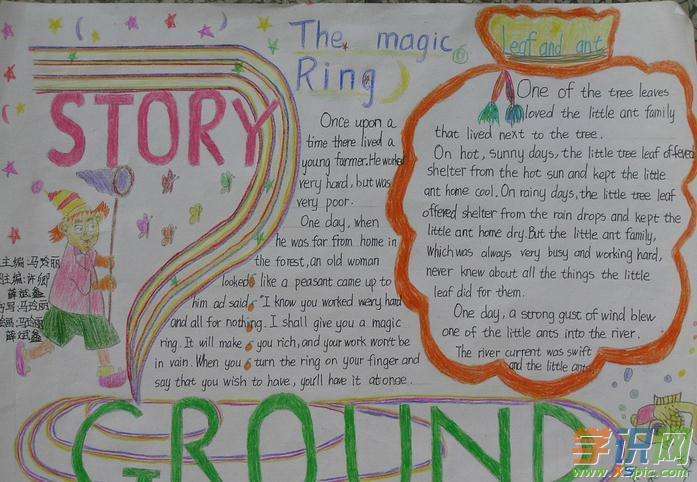 STORY
GROUND
The magic
Ring
Once upon a
time there lived a
young farmer. He worked
very hard, but was
very poor.
One day, when
he was far from home in
the forest, an old woman
looked like a peasant came up to
him ad said, "I know you worked wery hard
and all for nothing. I shall give you a magic
ring. It will make you rich, and your work won't be
in vain. When you turn the ring on your finger and
say that you wish to have, you'll have it at onge.
Leaf and ant
One of the tree leaves
loved the little ant family
that lived next to the tree.
On hot, sunny days, the little tree leaf offered
shelter from the hot sun and kept the little
ant home cool. On rainy days, the little tree leaf
offered shelter from the rain drops and kept the
little ant home dry. But the little ant family,
which was always very busy and working hard,
never knew about all the things the little
leaf did for them.
One day, a strong gust of wind blew
one of the little ants into the river.
The river current was swift
and the little ant
主编:马玲丽
学识网
www.xspic.com